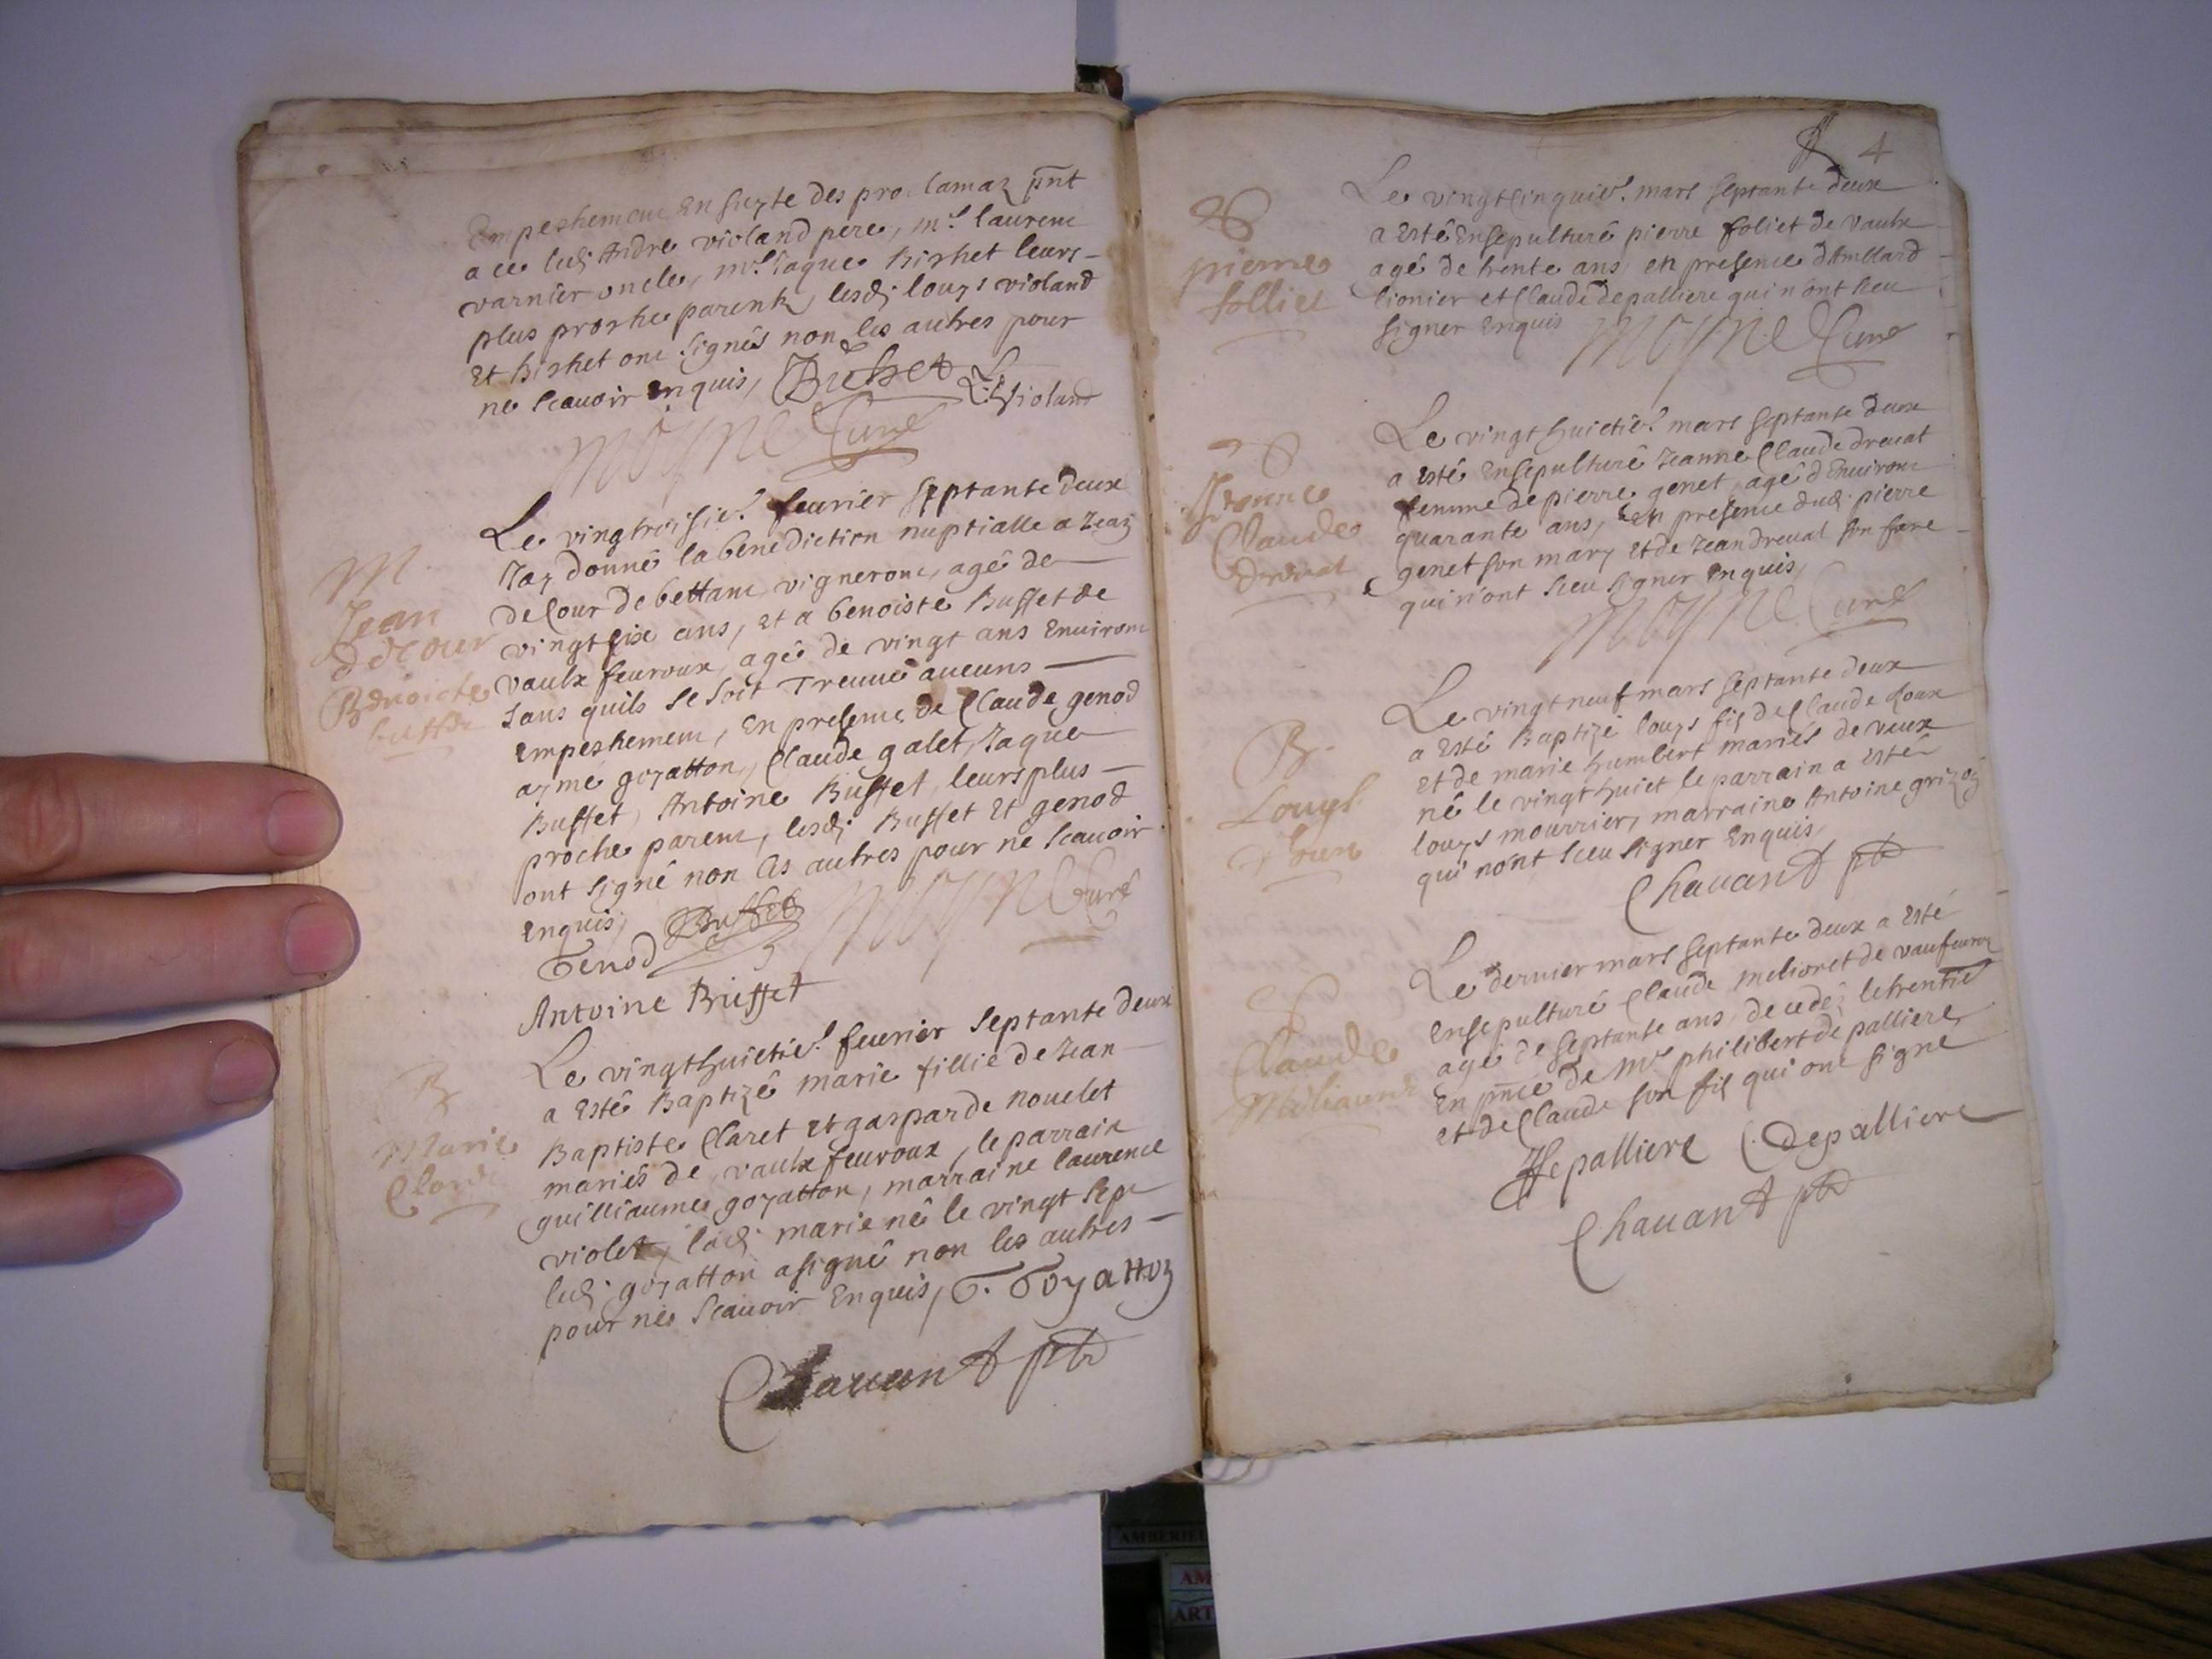 Empeshement En suyte des proclamaz pnt
a ce lud; Andre violand pere, mr. laurent
varnier oncle, mr. Jaque Bishet leurs
plus proshe parentz, lesd; louys violand
Et Bishet ont signés non les autres pour
ne scavoir enquis, Bichet L. Violand
Moyne Curé
M.
Jean
decour
Benoiste
buffet
Le vingtroisie. feurier septante deux
Jay donné la benediction nuptialle a Jean
decour de bettant, vigneront, agé de
vingt six ans, et a benoiste Buffet de
vaulx feuroux, agée de vingt ans Environ
sans quils se soit Treuué aucuns
empeshement, En presence de Claude genod
aymé goyatton, Claude galet, Jaque
Buffet, Antoine Buffet, leurs plus
proche parent, lesd; Buffet Et genod
ont signé non les autres pour ne scauoir
enquis, Buffet Moyne Curé
Genod
Antoine Buffet
B
Marie
Claret
Le vingthuictie. feurier septante deux
a esté Baptizé marie fillie de Jean
Baptiste Claret et gasparde nouelet
mariés de vaulx feuroux, le parrain
guilliaume goyatton, marraine laurence
violet, lad; marie né le vingt sept
lud; goyatton a signé non les autres
pour ne scauoir Enquis, G. Goyatton
Chauant ptr
4
S
pierre
folliet
Le vingtcinquie. mars septante deux
a esté Ensepulturé pierre foliet de vaulx
agé de trente ans, en presence d'Amblard
lionier et Claude depalliere qui n'ont sceu
signer enquis Moyne Curé
S
Jeanne
Claude
dreuat
Le vingthuictie. mars septante deux
a esté Ensepulturé Jeanne Claude dreuat
femme de pierre genet, agé d'Enuiront
quarante ans, en presence dud; pierre
genet son mary et de Jean dreuat son frere
qui n'ont sceu signer enquis,
Moyne Curé
B.
Louys
Le vingt neuf mars septante deux
a esté Baptizé louys fis de Claude doux
et de marie humbert mariés de vaux
né le vingt huict le parrain a esté
louys mourrier, marraine Antoine grizoz
qui n'ont sceu signer Enquis,
Chauant ptr
S
Claude
Le dernier mars septante deux a esté
ensepulturé Claude melioret de vaufeuroz
agé de septante ans, decedéz le trentie
En pnce de Mre philibert de palliere
et de Claude son fis qui ont signé
Depalliere C. Depalliere
Chauant ptr
AM
ART